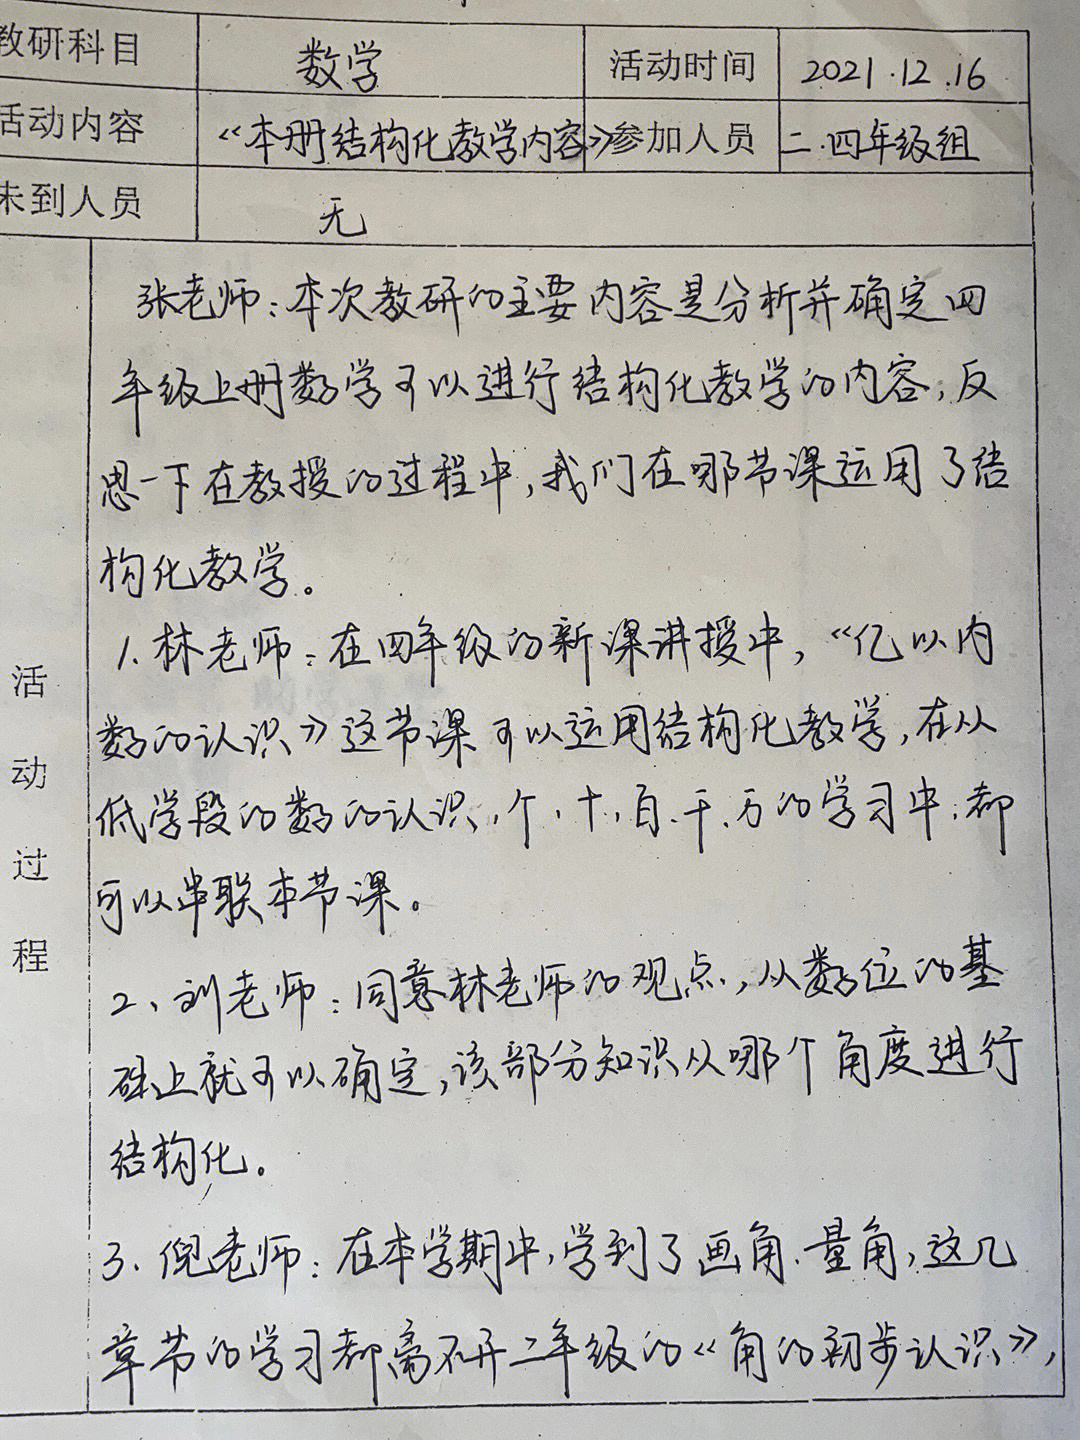 教研科目 数学 活动时间 2021.12.16
活动内容 《本册结构化教学内容》 参加人员 二.四年级组
未到人员 无
活动过程
张老师：本次教研的主要内容是分析并确定四
年级上册数学可以进行结构化教学的内容，反
思一下在教授的过程中，我们在哪节课运用了结
构化教学。
1.林老师：在四年级的新课讲授中，《亿以内
数的认识》这节课可以运用结构化教学，在从
低学段的数的认识，个、十、百、千、万的学习中，都
可以串联本节课。
2、刘老师：同意林老师的观点，从数位的基
础上就可以确定，该部分知识从哪个角度进行
结构化。
3.倪老师：在本学期中，学到了画角、量角，这几
章节的学习都离不开二年级的《角的初步认识》，